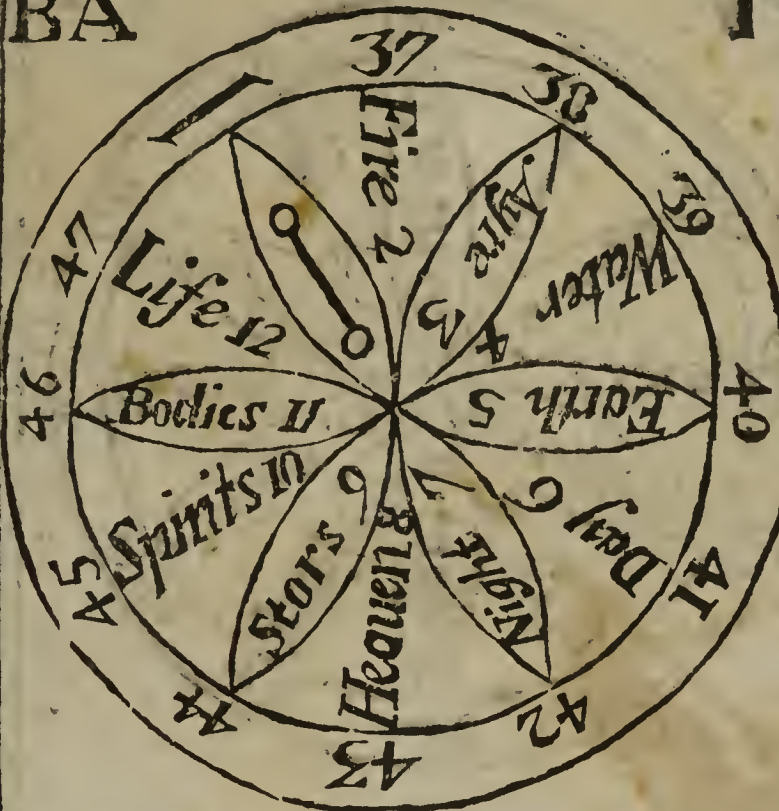 BA
37
38
39
40
41
42
43
44
45
46
47
Fire 2
Ayre 3
Water 4
Earth 5
Day 6
Night 7
Heauen 8
Stars 9
Spirits 10
Bodies 11
Life 12